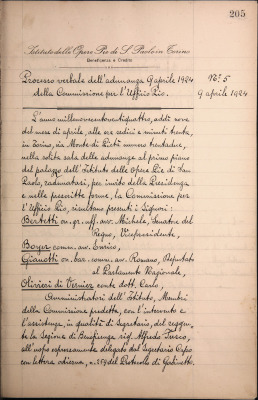 205
Istituto delle Opere Pie di S. Paolo in Torino
Beneficenza e Credito
Processo verbale dell'adunanza 9 aprile 1924
N.° 5
della Commissione per l'Ufficio Pio.
9 aprile 1924
L'anno millenovecentoventiquattro, addì nove
del mese di aprile, alle ore sedici e minuti trenta,
in Torino, via Monte di Pietà numero trentadue,
nella solita sala delle adunanze al primo piano
del palazzo dell'Istituto delle Opere Pie di San
Paolo, radunatasi, per invito della Presidenza
e nelle prescritte forme, la Commissione per
l'Ufficio Pio, risultano presenti i Signori:
Bertetti gr. uff. avv. Michele, Senatore del
Regno, Vicepresidente,
Boyer comm. avv. Enrico,
Gianotti on. bar. comm. avv. Romano, Deputato
al Parlamento Nazionale,
Olivieri di Vernier conte dott. Carlo,
Amministratori dell'Istituto, Membri
della Commissione predetta, con l'intervento e
l'assistenza, in qualità di Segretario, del reggen-
te la Sezione di Beneficenza rag. Alfredo
all'uopo espressamente delegato dal Segretario Capo
con lettera odierna, n. 559 del Protocollo di Gabinetto.